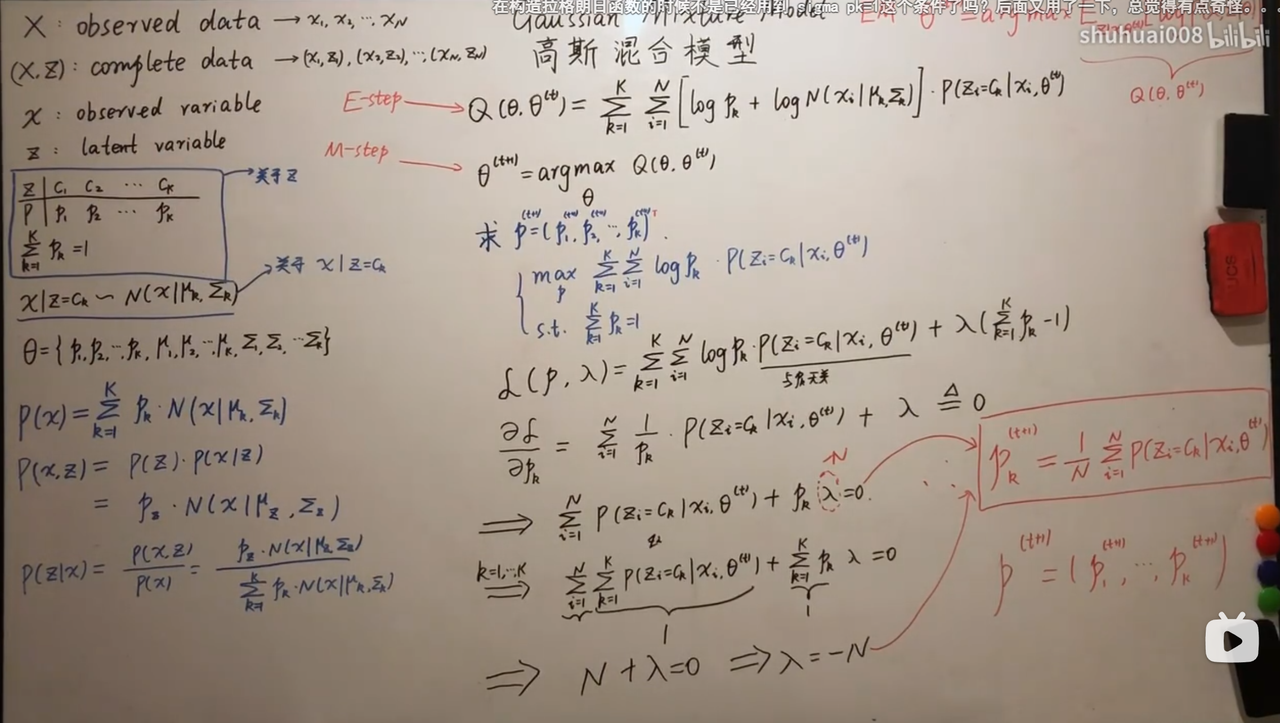 在构造拉格朗日函数的时候不是已经用到 sigma pk=1这个条件了吗？后面又用了一下，总觉得有点奇怪。。。
shuhuai008 bilibili
Gaussian Mixture Model
高斯混合模型
X : observed data → x₁, x₂, ⋯, x_N
(X, Z) : complete data → (x₁, z₁), (x₂, z₂), ⋯, (x_N, z_N)
x : observed variable
z : latent variable
z | C₁ C₂ ⋯ C_K
p | p₁ p₂ ⋯ p_K
∑_{k=1}^{K} p_k = 1
→ 关于 z
x|z=C_k ∼ N(x|μ_k, Σ_k)
→ 关于 x|z=C_k
θ = { p₁, p₂, ⋯, p_K, μ₁, μ₂, ⋯, μ_K, Σ₁, Σ₂, ⋯ Σ_K }
P(x) = ∑_{k=1}^{K} p_k · N(x|μ_k, Σ_k)
P(x, z) = P(z) · P(x|z)
= p_z · N(x|μ_z, Σ_z)
P(z|x) = P(x,z) / P(x) = p_z · N(x|μ_z, Σ_z) / ∑_{k=1}^{K} p_k · N(x|μ_k, Σ_k)
Q(θ, θ^{(t)})
E-step → Q(θ, θ^{(t)}) = ∑_{k=1}^{K} ∑_{i=1}^{N} [log p_k + log N(x_i|μ_k, Σ_k)] · P(z_i=C_k|x_i, θ^{(t)})
M-step → θ^{(t+1)} = argmax_θ Q(θ, θ^{(t)})
求 p^{(t+1)} = (p₁^{(t+1)}, p₂^{(t+1)}, ⋯, p_K^{(t+1)})^T.
{ max_p ∑_{k=1}^{K} ∑_{i=1}^{N} log p_k · P(z_i=C_k|x_i, θ^{(t)})
s.t. ∑_{k=1}^{K} p_k = 1
L(p, λ) = ∑_{k=1}^{K} ∑_{i=1}^{N} log p_k · P(z_i=C_k|x_i, θ^{(t)}) + λ(∑_{k=1}^{K} p_k - 1)
与p_k无关
∂L/∂p_k = ∑_{i=1}^{N} 1/p_k · P(z_i=C_k|x_i, θ^{(t)}) + λ ≜ 0
-N
⟹ ∑_{i=1}^{N} P(z_i=C_k|x_i, θ^{(t)}) + p_k λ = 0.
k=1,⋯,K ⟹ ∑_{i=1}^{N} ∑_{k=1}^{K} P(z_i=C_k|x_i, θ^{(t)}) + ∑_{k=1}^{K} p_k λ = 0
1 1
⟹ N + λ = 0 ⟹ λ = -N
p_k^{(t+1)} = 1/N ∑_{i=1}^{N} P(z_i=C_k|x_i, θ^{(t)})
p^{(t+1)} = (p₁^{(t+1)}, ⋯, p_K^{(t+1)})